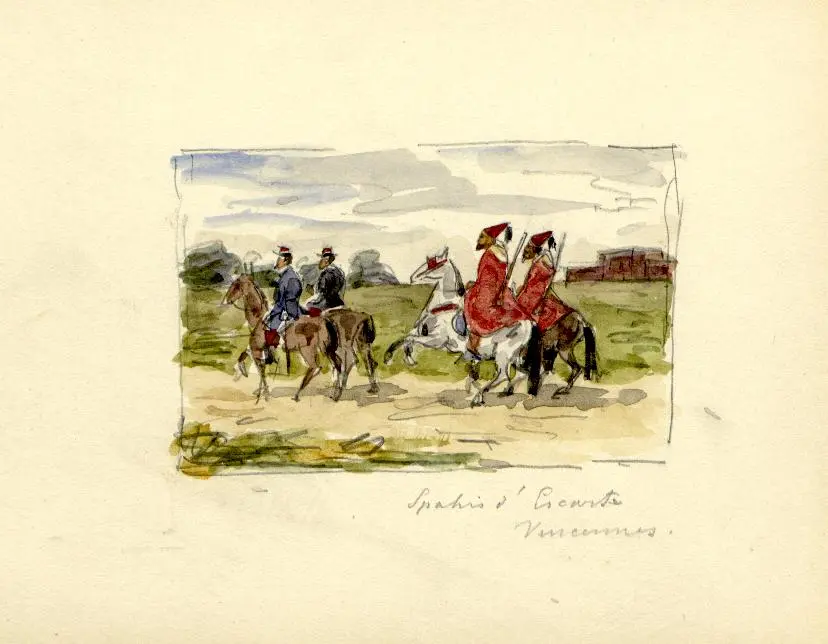 Spahis d' Escorte
Vincennes.